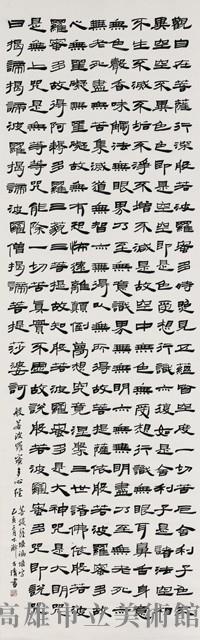 觀自在菩薩行深般若波羅蜜多時照見五蘊皆空度一切苦厄舍利子色不
異空空不異色色即是空空即是色受想行識亦復如是舍利子是諸法空相
不生不滅不垢不淨不增不減是故空中無色無受想行識無眼耳鼻舌身意
無色聲香味觸法無眼界乃至無意識界無無明亦無無明盡乃至無老死亦
無老死盡無苦集滅道無智亦無得以無所得故菩提薩埵依般若波羅蜜多故
心無罣礙無罣礙故無有恐怖遠離顛倒夢想究竟涅槃三世諸佛依般若波
羅蜜多故得阿耨多羅三藐三菩提故知般若波羅蜜多是大神咒是大明咒
是無上咒是無等等咒能除一切苦真實不虛故說般若波羅蜜多咒即說咒
曰揭諦揭諦波羅揭諦波羅僧揭諦菩提莎婆訶
般若波羅蜜多心經
高雄市立美術館